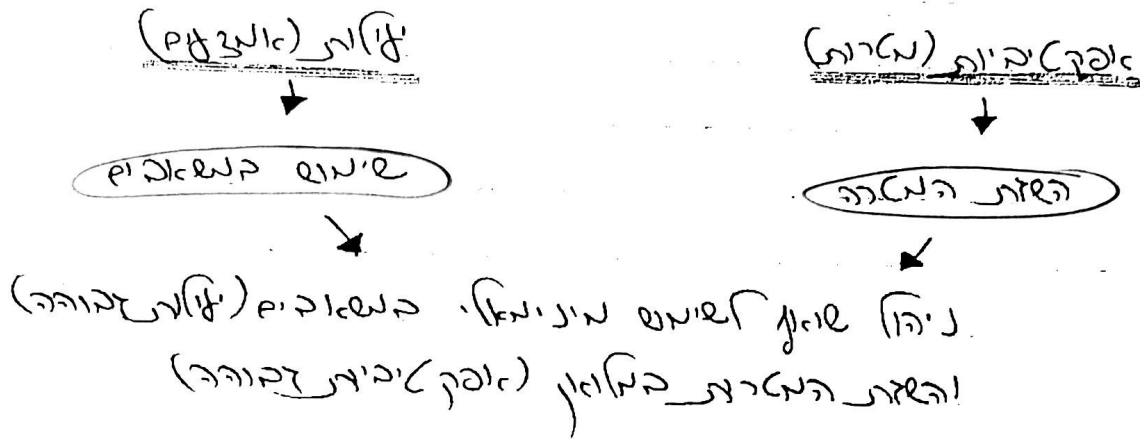 אפקטיביות (מטרות)
יעילות (אמצעים)
השגת המטרה
שימוש במשאבים
ניהול שואף לשימוש מינימאלי במשאבים (יעילות גבוהה)
והשגת המטרות במלואן (אפקטיביות גבוהה)